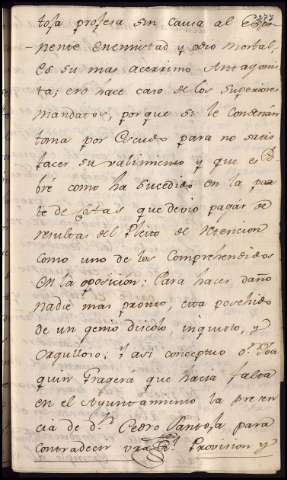 tosa profesa sin causa al
nente enemistad y odio mortal,
es su mas acerrimo Antagonis
ta; ero hace caso de los Superiores
mandatos, porque si le
toma por Escudo para no satis
facer su valimiento y que es
bré como ha sucedido en la par
te de que devio pagar de
resultas del Pleito de Retencion
como uno de los Comprehendidos
en la oposicion: Para hacer daño
nadie mas pronto, esta posehido
de un genio discolo inquieto, y
orgulloso: Y asi conceptuo Dn. Joa
quin Fragerá que hacia falta
en el Ayuntamiento la presen
cia de Dn. Pedro Pantoja para
contradecir Rl. Provision y